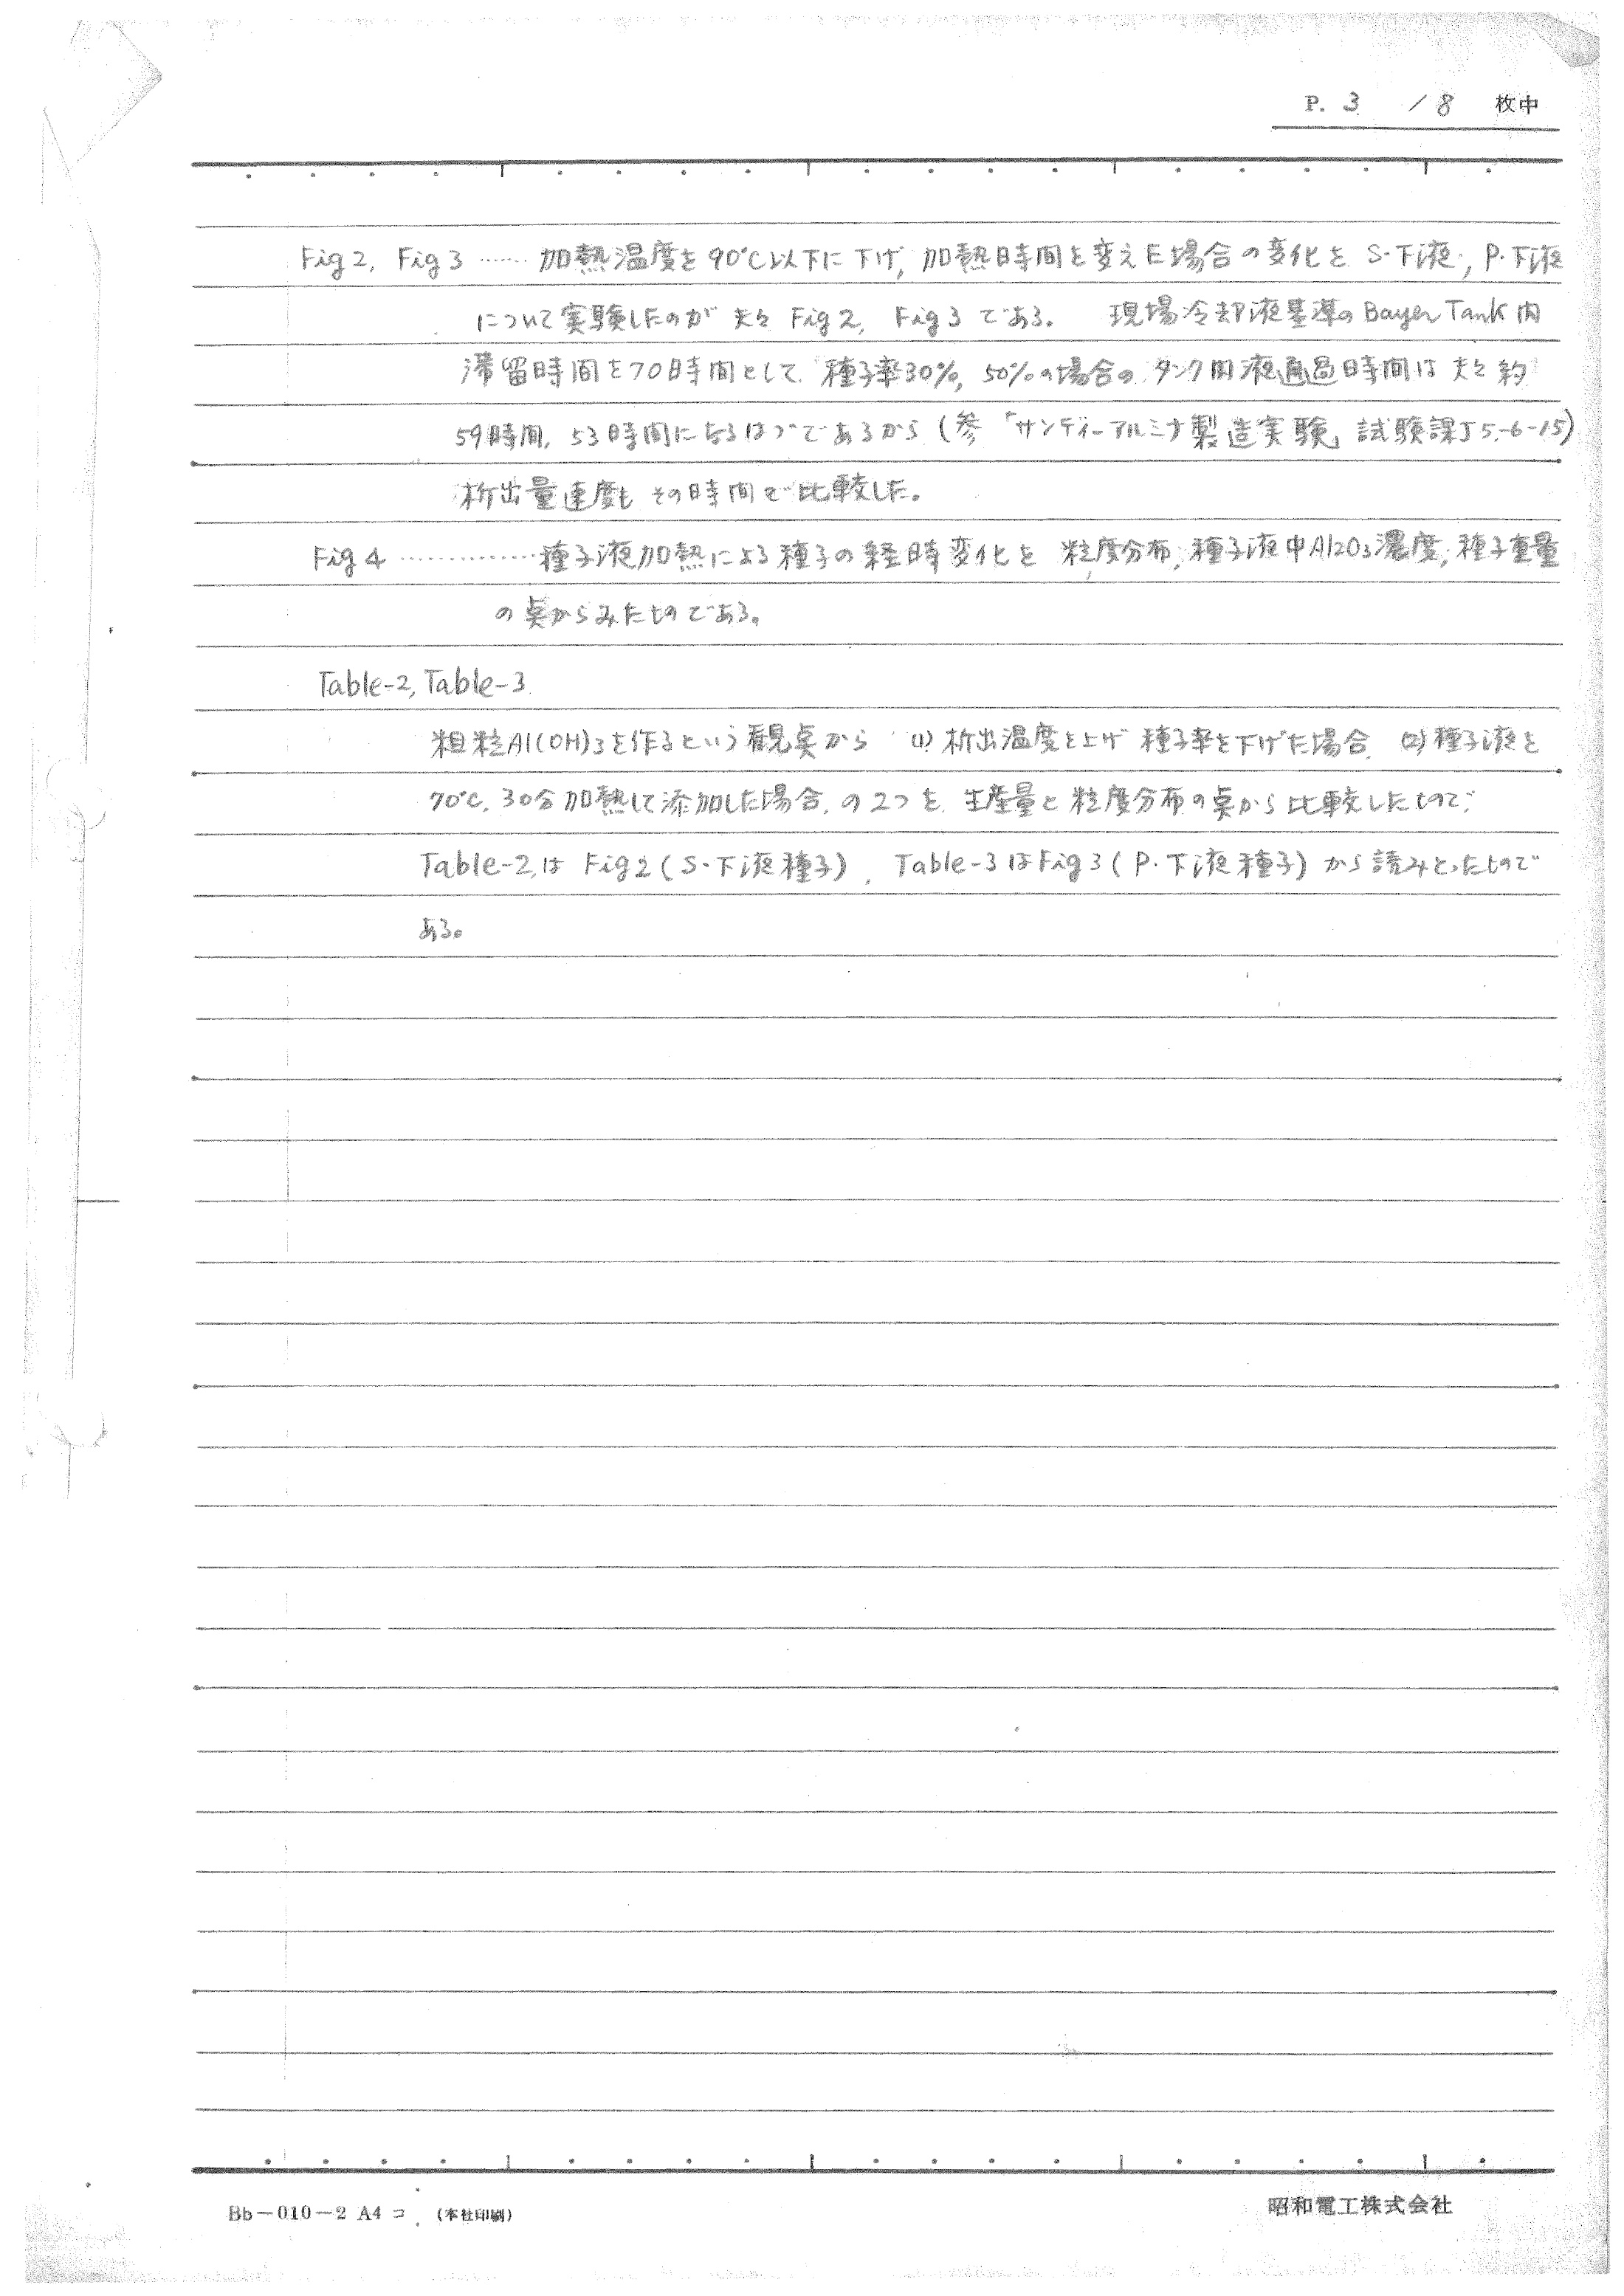 P. 3 / 8 枚中
Fig 2, Fig 3 …… 加熱温度を90℃以下に下げ, 加熱時間を変えた場合の変化を S・下液, P・下液
について実験したのが 夫々 Fig 2, Fig 3 である。 現場冷却液基準の Bayer Tank 内
滞留時間を70時間として 種子率30%, 50%の場合の タンク内液通過時間は 夫々 約
59時間, 53時間になるはづであるから (参「サンディーアルミナ製造実験」試験課J 5-6-15)
析出量速度も その時間で比較した。
Fig 4 …………… 種子液加熱による種子の経時変化を 粒度分布, 種子液中Al2O3濃度, 種子重量
の点からみたものである。
Table-2, Table-3
粗粒Al(OH)3を作るという観点から (1) 析出温度を上げ 種子率を下げた場合, (2) 種子液を
70℃, 30分加熱して添加した場合, の2つを 生産量と粒度分布の点から比較したもので,
Table-2は Fig 2 (S・下液種子), Table-3はFig 3 (P・下液種子) から読みとったもので
ある。
Bb-010-2 A4 コ (本社印刷)
昭和電工株式会社